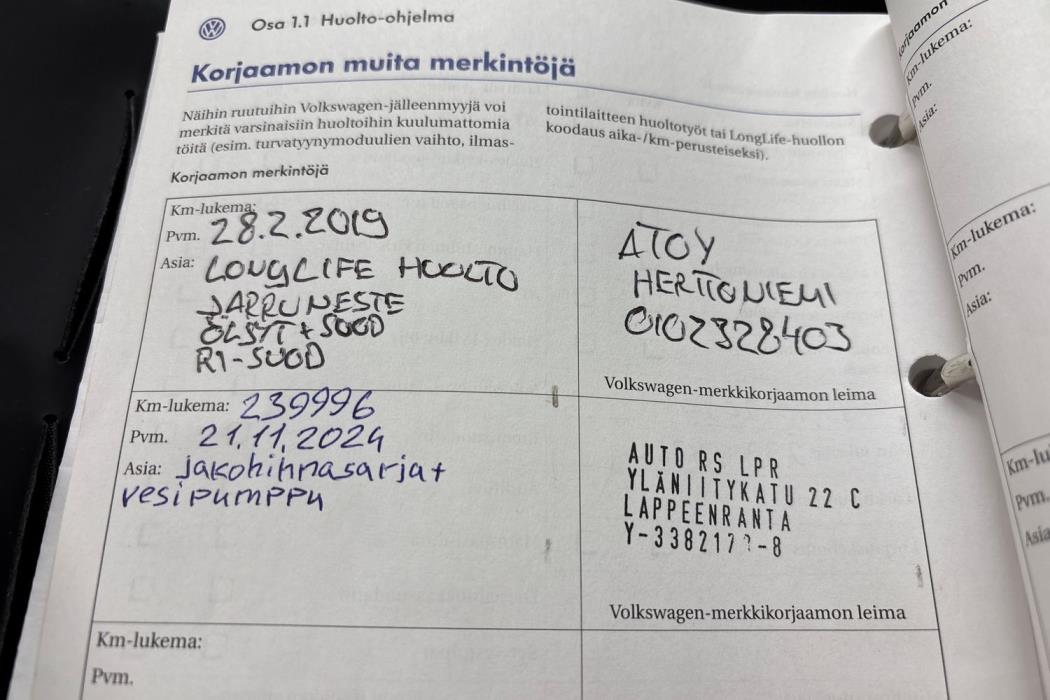 Osa 1.1 Huolto-ohjelma
Korjaamon muita merkintöjä
Näihin ruutuihin Volkswagen-jälleenmyyjä voi
merkitä varsinaisiin huoltoihin kuulumattomia
töitä (esim. turvatyynymoduulien vaihto, ilmas-
tointilaitteen huoltotyöt tai LongLife-huollon
koodaus aika-/km-perusteiseksi).
Korjaamon merkintöjä
Km-lukema:
Pvm. 28.2.2019
Asia: LONGLIFE HUOLTO
JARRUNESTE
ÖLJYT + SUOD
RI-SUOD
ATOY
HERTTONIEMI
0102328403
Volkswagen-merkkikorjaamon leima
Km-lukema: 239996
Pvm. 21.11.2024
Asia: jakohihnasarja+
vesipumppu
AUTO RS LPR
YLÄNIITYKATU 22 C
LAPPEENRANTA
Volkswagen-merkkikorjaamon leima
Km-lukema:
Pvm.
Korjaamon
Km-lukema:
Pvm.
Asia:
Km-lukema:
Pvm.
Asia:
Km-lu
Pvm.
Asia